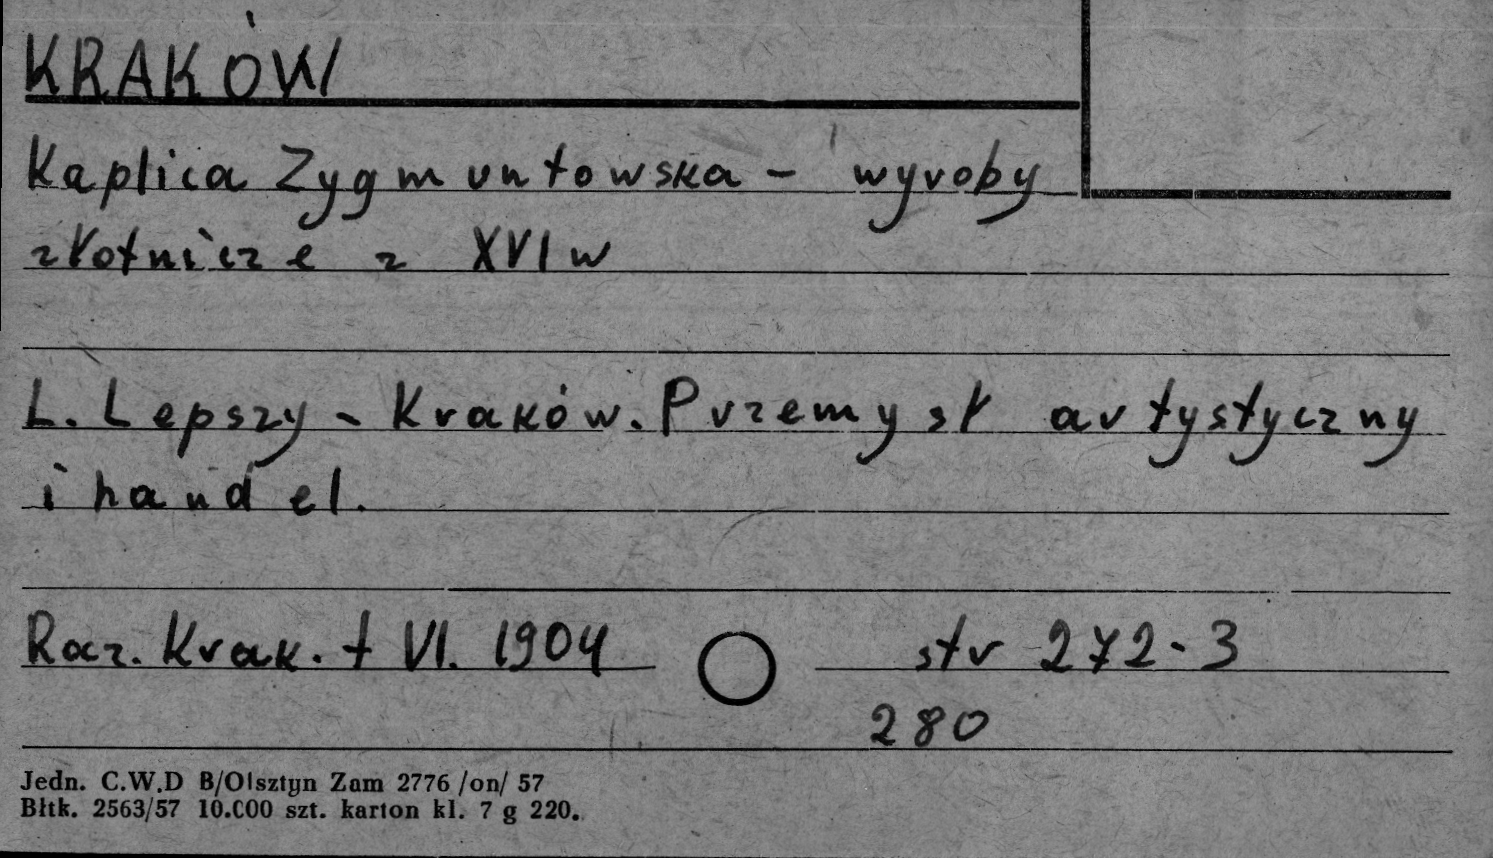 KRAKÓW
Kaplica Zygmuntowska - wyroby
złotnicze z XVI w
L. Lepszy - Kraków. Przemysł artystyczny
i handel.
Rocz. Krak. t VI. 1904 str 272-3
280
Jedn. C.W.D B/Olsztyn Zam 2776 /on/ 57
Błtk. 2563/57 10.000 szt. karton kl. 7 g 220.